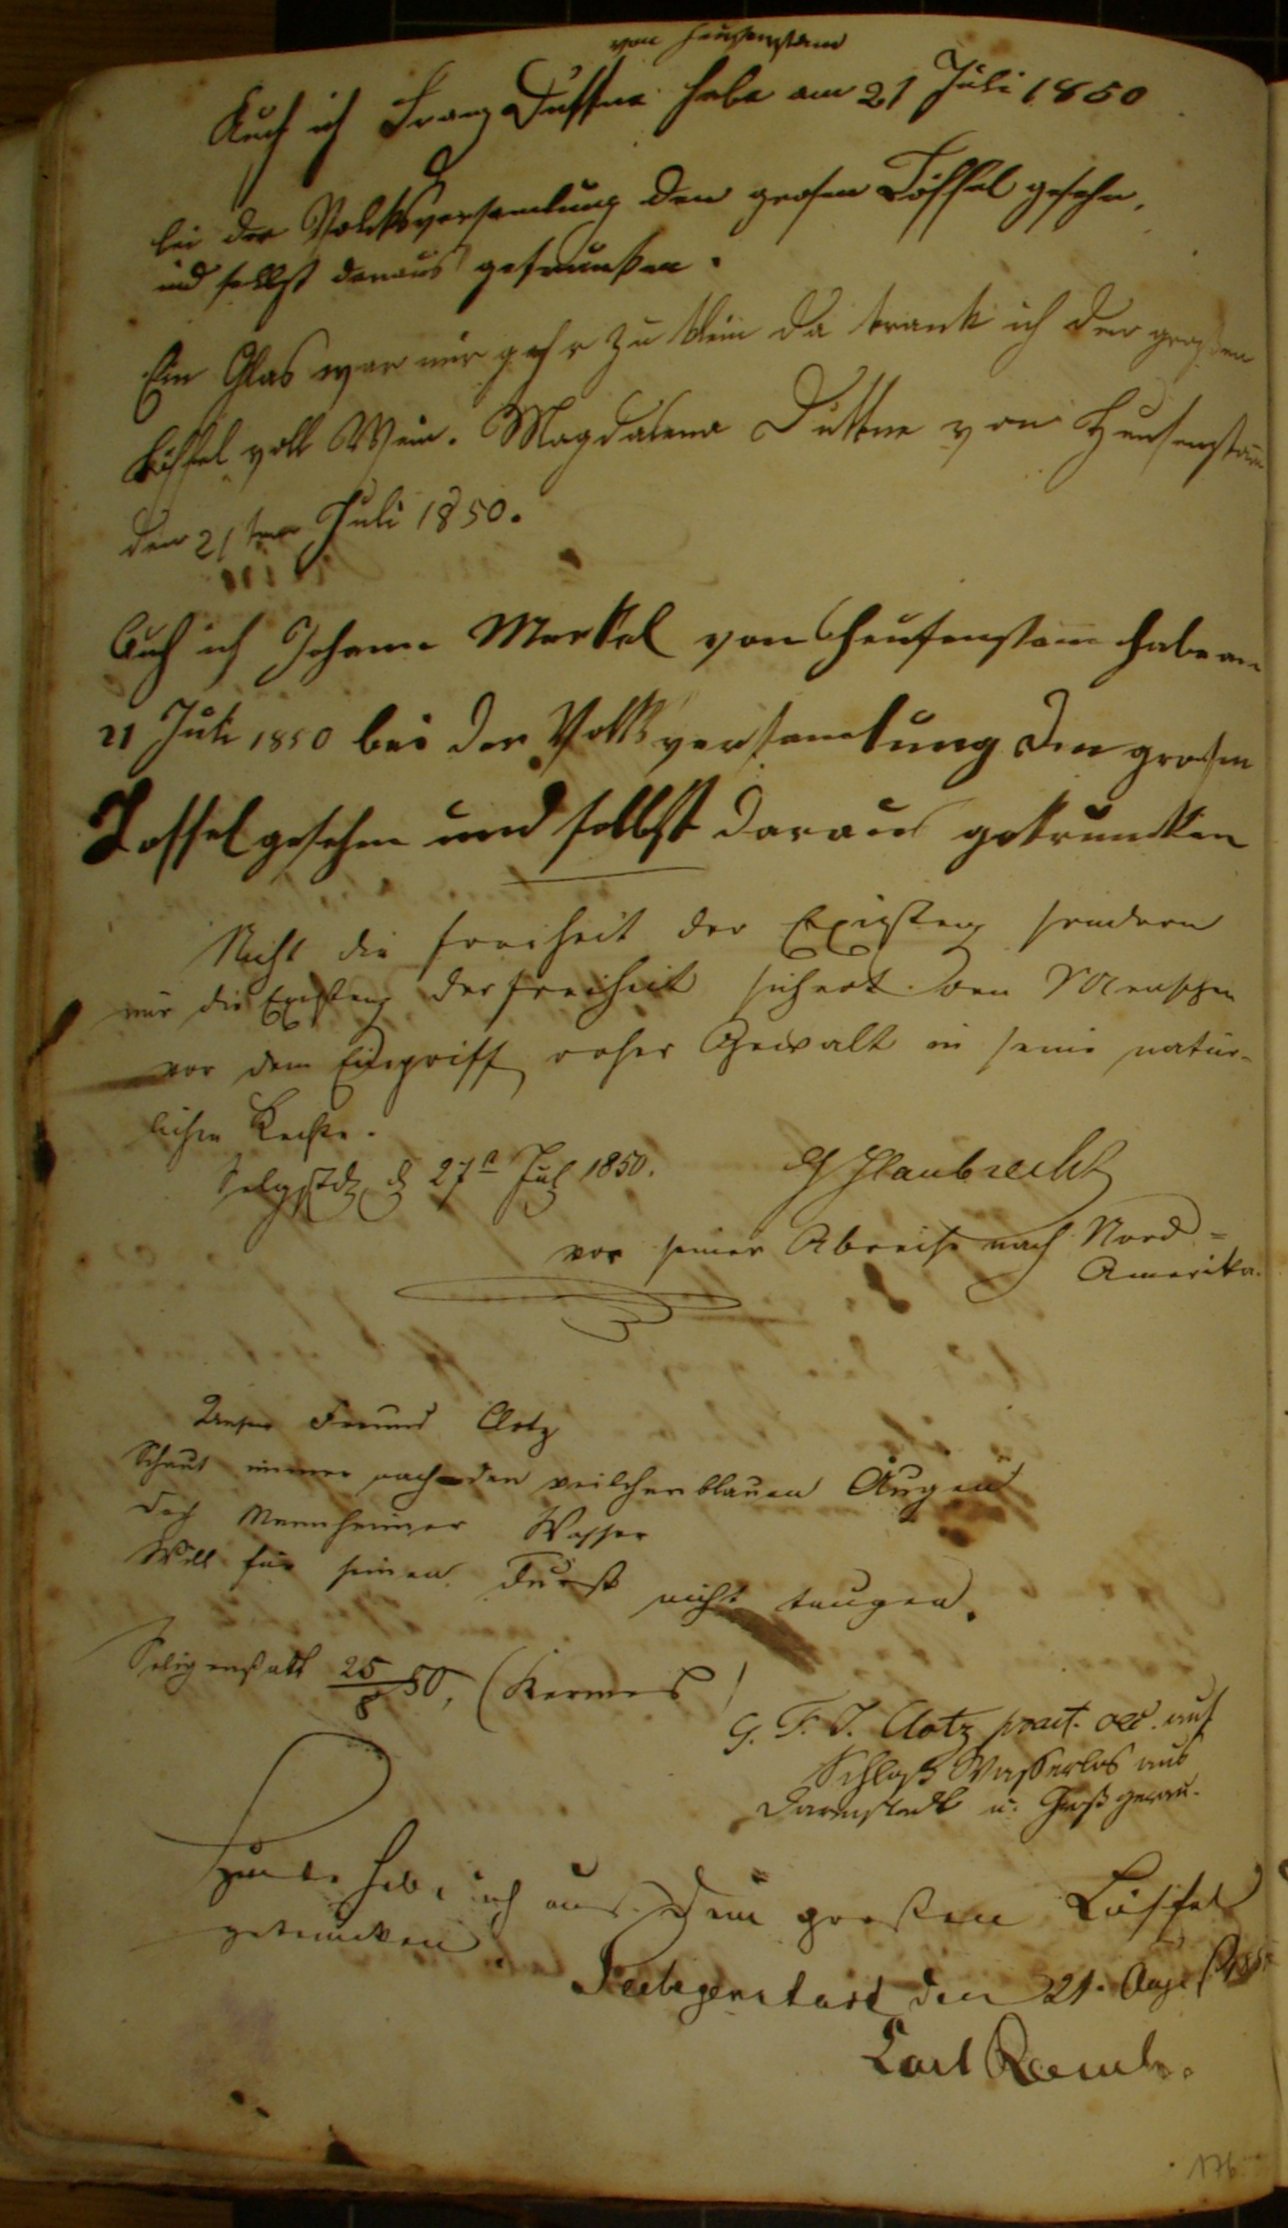 von Heusenstam
Auch ich Franz Duttine habe am 21 Juli 1850
bei der Volksversamlung den grosen Löffel gesehn,
und selbst daraus getrunken.
Ein Glas war mir gahr zu klein da trank ich den großen
Löffel voll Wein. Magdalena Duttine von Heusenstam
den 21ten Juli 1850.
Auch ich Johann Merkel von Heusenstam habe am
21 Juli 1850 bei der Volksversamlung den grosen
Loffel gesehen und sellbst daraus getruncken
Nicht die Freiheit der Existenz sondern
nur die Existenz der Freiheit sichert den Menschen
vor dem Eingriff roher Gewalt in seine natür-
lichen Rechte.
Selgstdt d 27n Jul 1850. Glaubrecht
vor seiner Abreise nach Nord=
Amerika.
Unser Freund Clotz
Schaut immer nach den veilchenblauen Augen
Doch Mannheimer Wasser
Will für seinen Durst nicht taugen.
Seligenstatt 25/8 50, (Kermes)
G. F. J. Clotz pract. oec. auf
Schloß Wasserlos aus
Darmstadt u. Groß gerau.
Heute hab ich aus dem großen Löffel
getruncken
Seeligenstadt den 21. Aug.
Carl
176